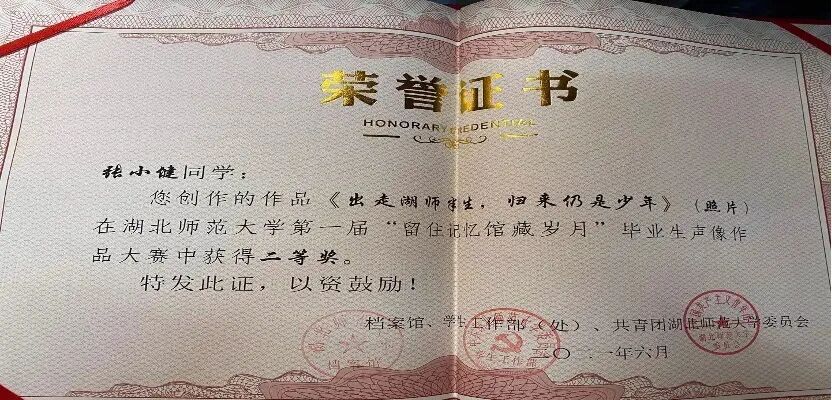 荣誉证书
HONORARY CREDENTIAL
张小健同学：
您创作的作品《出走湖师半生，归来仍是少年》（照片）
在湖北师范大学第一届“留住记忆馆藏岁月”毕业生声像作
品大赛中获得二等奖。
特发此证，以资鼓励！
档案馆、学生工作部（处）、共青团湖北师范大学委员会
二〇二一年六月
档案馆